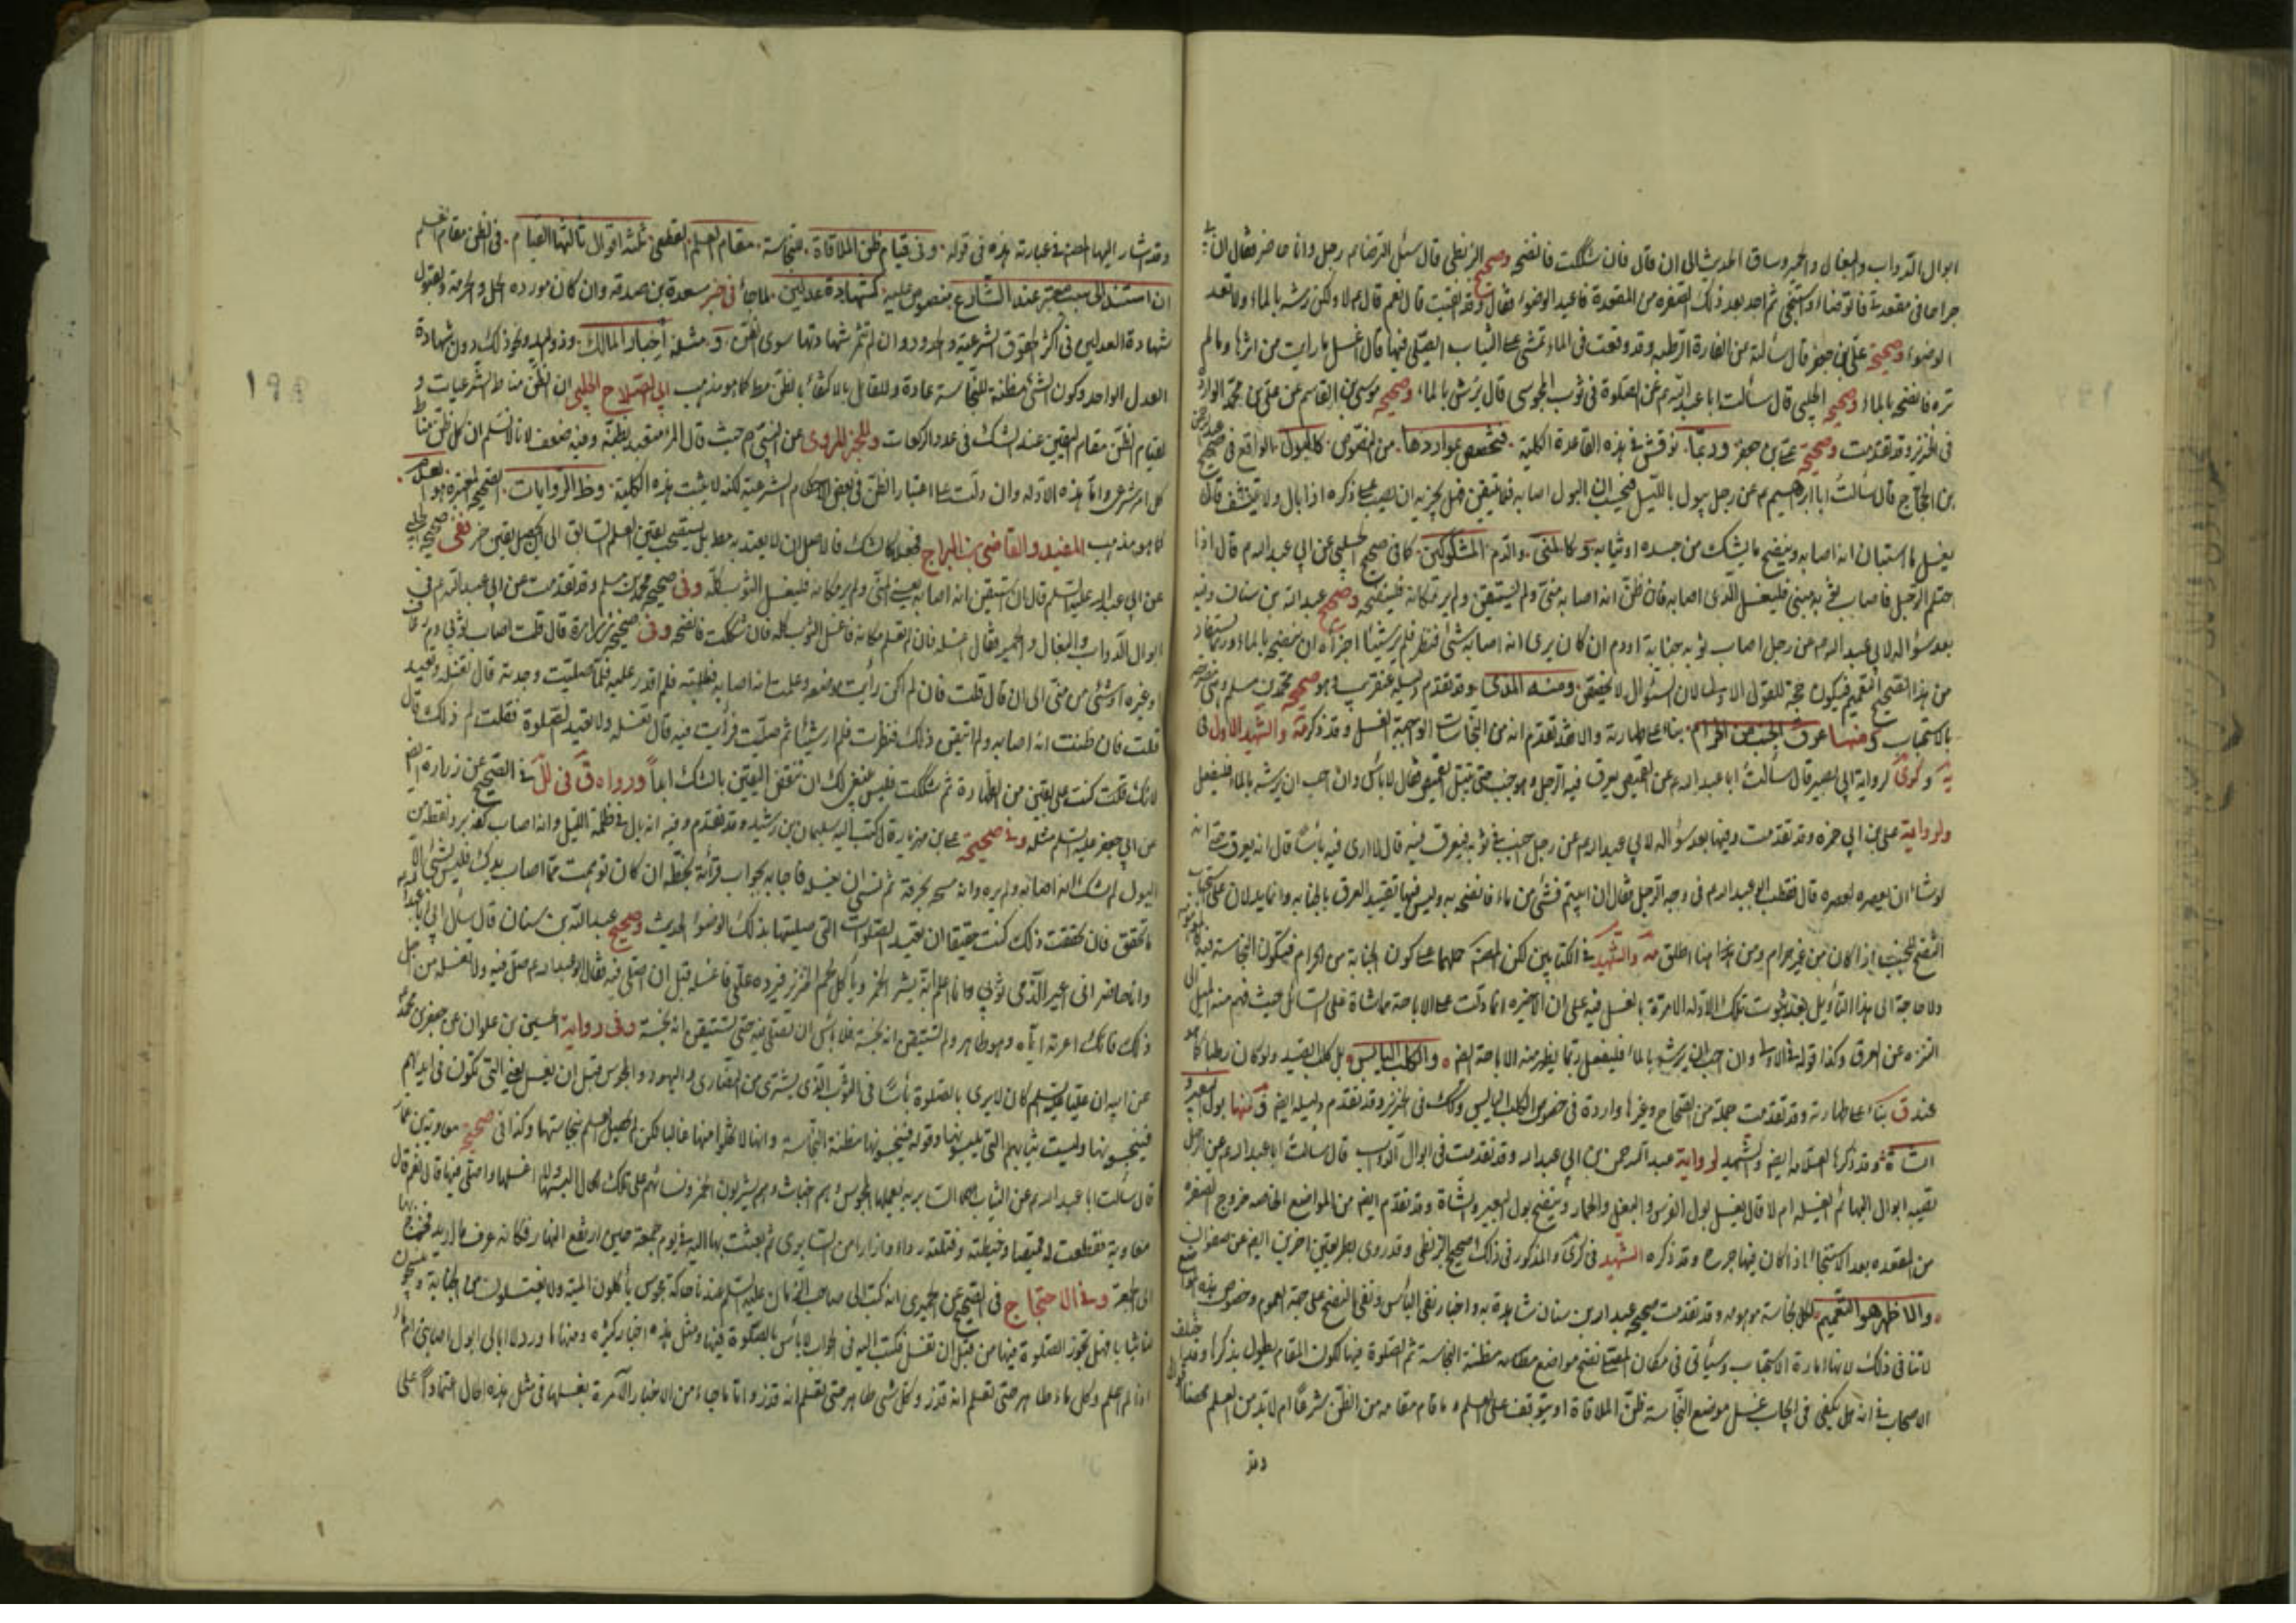 ابوال الدواب والبغال والحمير وساق الحديث الى ان قال فان شككت فانضحه وصحيح البزنطي قال سئل الرضا م رجل وانا حاضر فقال ان بي
جراحا في مقعدتي فاتوضأ واستنجي ثم اجد بعد ذلك الصفرة من المقعدة فاعيد الوضوء فقال وقد انقيت قال نعم قال م لا ولكن رشه بالماء ولا تعد
الوضوء وصحيحة علي بن جعفر قال سألته من الفارة الرطبة وقد وقعت في الماء تمشي على الثياب ايصلى فيها قال اغسل ما رايت من اثرها وما لم
تره فانضحه بالماء وصحيح الحلبي قال سألت ابا عبد الله م عن الصلوة في ثوب المجوسي قال يرش بالماء وصحيح موسى بن القاسم عن علي بن محمد الوارد
في الخنزير وقد تقدمت وصحيحة علي بن جعفر وربما نوقش في هذه القاعدة الكلية فتخصص بمواردها من النصوص كالبول الواقع في صحيح
بن الحجاج قال سألت ابا ابرهيم م عن رجل يبول بالليل فيحسب ان البول اصابه فلا يستيقن فهل يجزيه ان يصب على ذكره اذا بال ولا يتنشف قال
يغسل ما استبان انه اصابه وينضح ما يشك من جسده او ثيابه وكالمني والدم المشكوكين كما في صحيح الحلبي عن ابي عبد الله م قال اذا
احتلم الرجل فاصاب ثوبه مني فليغسل الذي اصابه فان ظن انه اصابه مني ولم يستيقن ولم ير مكانه فلينضحه وصحيح عبد الله بن سنان وفيه
بعد سؤاله لابي عبد الله م عن رجل اصاب ثوبه جنابة او دم ان كان يرى انه اصابه شئ فنظر فلم ير شيئا اجزأه ان ينضحه بالماء وربما يستفاد
من هذا التعميم فيكون حجة للقول الاول لان السؤال لا يخصص ومنه المذى وقد تقدم دليله عن قريب وهو صحيح محمد بن مسلم
بالاستحباب ومنها عرق الجنب من الحرام بناء على طهارته والا فقد تقدم انه من النجاسات الواجبة الغسل وقد ذكره والشهيد الاول في
وكرى لرواية ابي بصير قال سألت ابا عبد الله م عن القميص يعرق فيه الرجل وهو جنب حتى يبتل القميص فقال لا بأس وان احب ان يرشه بالماء فليفعل
ولرواية علي بن ابي حمزة وقد تقدمت وفيها بعد سؤاله لابي عبد الله م عن رجل اجنب في ثوبه فيعرق فيه قال لا ارى فيه بأسا قال انه يعرق حتى انه
لو شاء ان يعصره لعصره قال فقطب ابو عبد الله م في وجه الرجل فقال ان ابيتم فشئ من ماء فانضحه به وليس فيها تقييد العرق بالجنابة وانما يدلان على استحباب
النضح للجنب اذا كان من غير حرام ومن هنا اطلق والشهيد في الكتابين لكن المصنف حملها على كون الجنابة من الحرام فيكون النجاسة فيه
ولا حاجة الى هذا التأويل بعد ثبوت تلك الادلة الامرة بالغسل فيه على ان الاخيرة انما دلت على الاباحة مماشاة على السائل حيث فهم منه الميل الى
التنزه عن العرق وكذا قوله في الاولى وان احب ان يرشه بالماء فليفعل ربما يظهر منه الاباحة ايضا والكلب اليابس بل كلب الصيد ولو كان رطبا كما هو
عند ق بناء على طهارته وقد تقدمت جملة من الصحاح وغيرها واردة في خصوص الكلب اليابس وكذلك في الخنزير وقد تقدم دليله ايضا ومنها بول البعير و
الشاة وقد ذكرها العلامة ايضا والشهيد لرواية عبد الرحمن بن ابي عبد الله وقد تقدمت في ابوال الدواب قال سألت ابا عبد الله م عن الرجل
تصيبه ابوال البهائم أيغسله ام لا قال يغسل بول الفرس والبغل والحمار وينضح بول البعير والشاة وقد تقدم ايضا من المواضع الخاصة خروج الصفرة
من المقعدة بعد الاستنجاء اذا كان فيها جرح وقد ذكره الشهيد في كرى والمذكور في ذلك صحيح البزنطي وقد روى بطريقين اخرين ايضا عن صفوان
والاظهر هو التعميم لكل نجاسة موهومة وقد تقدمت صحيحة عبد الله بن سنان شاهدة به واخبار نفي البأس ونفي النضح على جهة العموم وخصوص هذه المواضع
لا تنافي ذلك لانها امارة الاستحباب وسيأتي في مكان المصلي نضح مواضع مظنة النجاسة ثم الصلوة فيها لكون المقام يطول بذكرها وقد اختلف
الاصحاب في انه هل يكفي في ايجاب غسل موضع النجاسة ظن الملاقاة او يتوقف على العلم وما قام مقامه من الظن شرعا ام لا بد من العلم
وقد
وقد اشار اليها المص في عبارته هذه في قوله وفي قيام ظن الملاقاة للنجاسة مقام العلم القطعي ثلثة اقوال ثالثها القيام في الظن مقام العلم
ان استند الى سبب معتبر عند الشارع بنصوص عليه كشهادة عدلين لما جاء في خبر مسعدة بن صدقة وان كان مورده الحل والحرمة ولقبول
شهادة العدلين في اكثر الحقوق الشرعية والحدود وان لم تثمر شهادتهما سوى الظن ومثله اخبار المالك وذو اليد ونحو ذلك دون شهادة
العدل الواحد وكون الشئ مظنة للنجاسة عادة وللقائل بالاكتفاء بالظن مطلقا كما هو مذهب ابي الصلاح الحلبي ان الظن مناط الشرعيات و
لقيام الظن مقام اليقين عند الشك في عدد الركعات وللخبر المروي عن النبي م حيث قال المرء متعبد بظنه وفيه ضعف لانا لا نسلم ان كل ظن مناط
كل امر شرعي وانما هذه الادلة وان دلت على اعتبار الظن في بعض الاحكام الشرعية لكنه لا يثبت هذه الكلية وظاهر الروايات الصحيحة المعتبرة هو العدم
كما هو مذهب المفيد والقاضي بن البراج فجعله كالشك فالاصل ان لا يعتد به مطلقا بل يستصحب يقين العلم السابق الى ان يحصل يقين اخر ففي صحيحة الحلبي
عن ابي عبد الله عليه السلم قال ان استيقن انه اصابه يعني المني ولم ير مكانه فليغسل الثوب كله وفي صحيح محمد بن مسلم وقد تقدمت عن ابي عبد الله م في
ابوال الدواب والبغال والحمير فقال اغسله فان لم تعلم مكانه فاغسل الثوب كله فان شككت فانضحه وفي صحيحة زرارة قال قلت اصاب ثوبي دم رعاف
او غيره او شئ من مني الى ان قال قلت فان لم اكن رأيت موضعه وعلمت انه اصابه فطلبته فلم اقدر عليه فلما صليت وجدته قال تغسله وتعيد
قلت فان ظننت انه اصابه ولم اتيقن ذلك فنظرت فلم ار شيئا ثم صليت فرأيت فيه قال تغسله ولا تعيد الصلوة فقلت لم ذلك قال
لانك قلت كنت على يقين من الطهارة ثم شككت فليس ينبغي لك ان تنقض اليقين بالشك ابدا ورواه ق في لل في الصحيح عن زرارة ايضا
عن ابي جعفر عليه السلم مثله وفي صحيحة علي بن مهزيار قال كتب اليه سليمان بن رشيد وقد تقدم وفيه انه بال في ظلمة الليل وانه اصاب كفه برد نقطة من
البول لم يشك انه اصابه ولم يره وانه مسحه بخرقة ثم نسي ان يغسله فاجابه بجواب قرأته بخطه ان كان توهمت مما اصاب يدك فليس بشئ الا
ما تحقق فان تحققت ذلك كنت حقيقا ان تعيد الصلوات التي صليتها بذلك الوضوء الحديث وصحيح عبد الله بن سنان قال سأل ابي ابا عبد الله
وانا حاضر اني اعير الذمي ثوبي وانا اعلم انه يشرب الخمر ويأكل لحم الخنزير فيرده علي فاغسله قبل ان اصلي فيه فقال ابو عبد الله م صل فيه ولا تغسله من اجل
ذلك فانك اعرته اياه وهو طاهر ولم تستيقن انه نجسه فلا بأس ان تصلي فيه حتى تستيقن انه نجسه وفي رواية الحسين بن علوان عن جعفر بن محمد
عن ابيه ان عليا عليهم السلم كان لا يرى بالصلوة بأسا في الثوب الذي يشترى من النصارى واليهود والمجوس قبل ان يغسل يعني التي تكون في ايديهم
فينجسونها وليست بثيابهم التي يلبسونها وقوله فينجسونها مظنة النجاسة وانها لا تخلو منها غالبا لكن لم يحصل العلم بنجاستها وكذا في صحيحة معاوية بن عمار
قال سألت ابا عبد الله م عن الثياب السابرية يعملها المجوس وهم اخباث وهم يشربون الخمر ونساؤهم على تلك الحال البسها ولا اغسلها واصلي فيها قال نعم قال
معاوية فقطعت له قميصا وخيطته وفتلت له ازرارا ورداء من السابري ثم بعثت بها اليه في يوم جمعة حين ارتفع النهار فكانه عرف ما اريد فخرج بها
الى الجمعة وفي الاحتجاج في الصحيح عن الحميري انه كتب الى صاحب الزمان عليه السلم عندنا حاكة مجوس يأكلون الميتة ولا يغتسلون من الجنابة وينسجون
لنا ثيابا فهل تجوز الصلوة فيها من قبل ان تغسل فكتب اليه في الجواب لا بأس بالصلوة فيها ومثل هذه اخبار كثيرة ومنها ما ورد لا ابالي ابول اصابني ام ماء
اذا لم اعلم وكل ماء طاهر حتى تعلم انه قذر وكل شئ طاهر حتى تعلم انه قذر واما ما جاء من الاخبار الآمرة بغسلها في مثل هذه الحال اعتمادا على